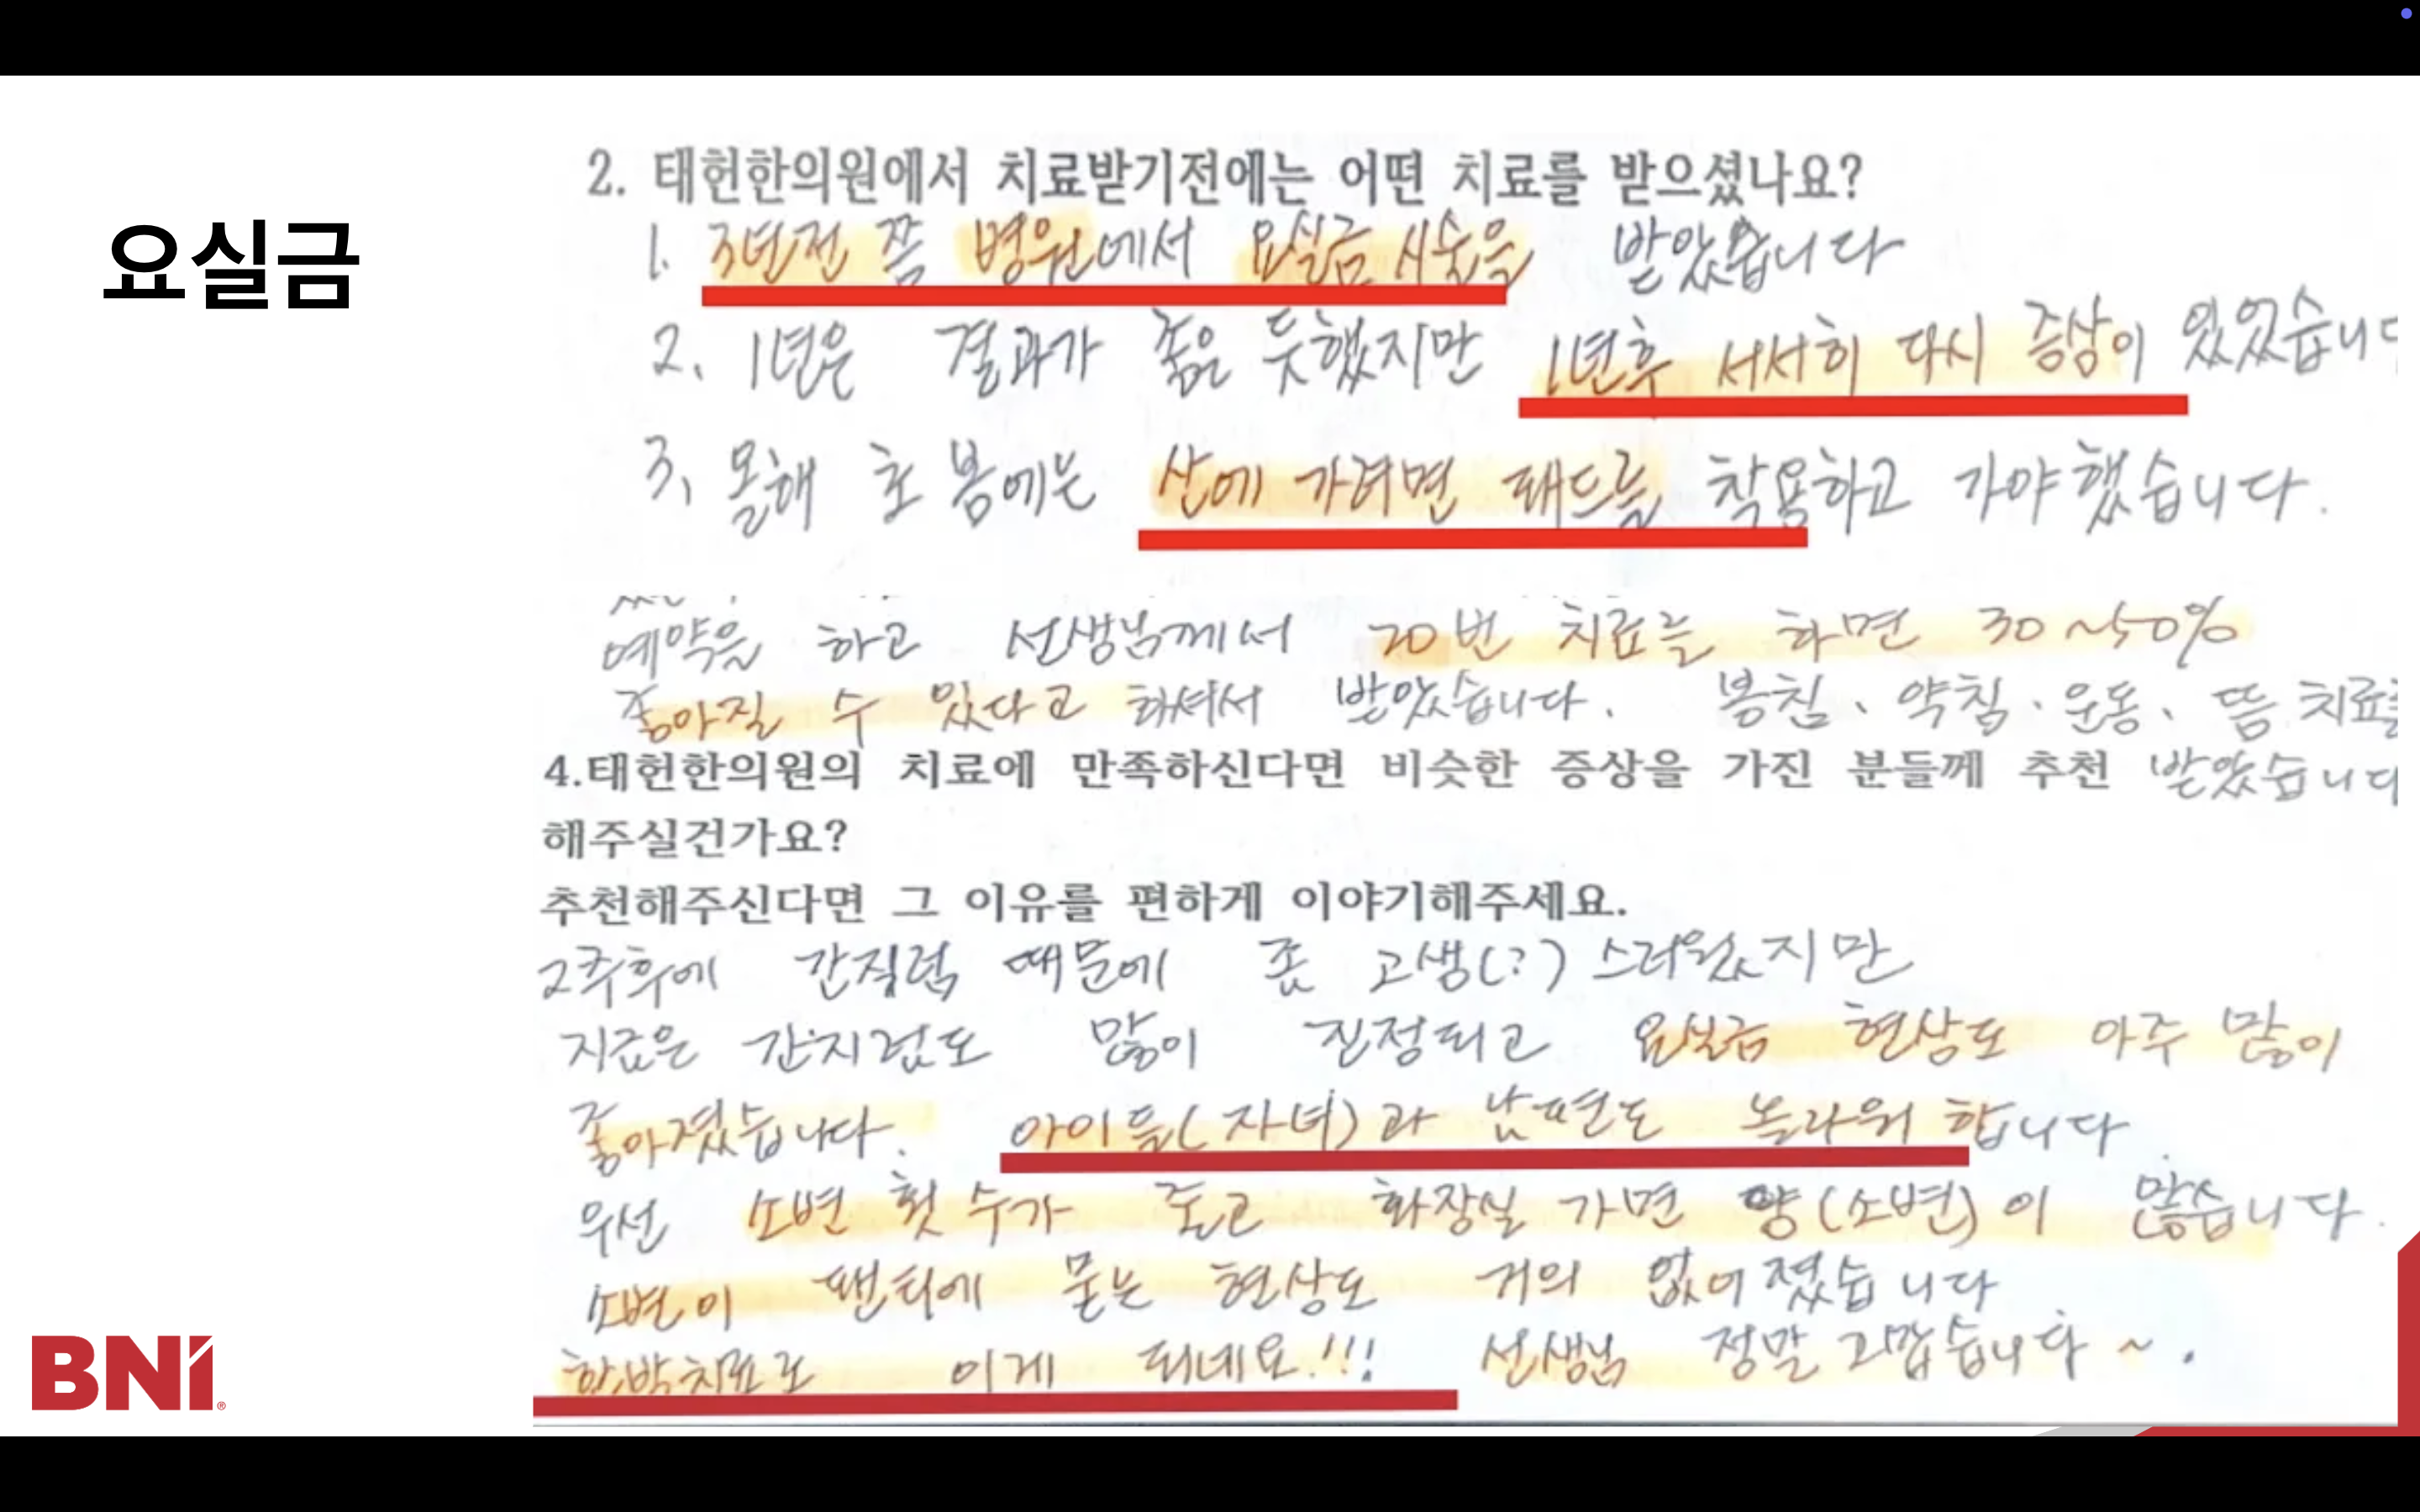 요실금
2. 태헌한의원에서 치료받기전에는 어떤 치료를 받으셨나요?
1. 3년전 쯤 병원에서 요실금 시술을 받았습니다
2. 1년은 결과가 좋은 듯했지만 1년후 서서히 다시 증상이 있었습니다
3. 올해 초 봄에는 산에 가려면 패드를 착용하고 가야했습니다.
예약을 하고 선생님께서 20번 치료를 하면 30~50%
좋아질 수 있다고 하셔서 받았습니다. 봉침、약침、운동、뜸 치료를
4.태헌한의원의 치료에 만족하신다면 비슷한 증상을 가진 분들께 추천 받았습니다
해주실건가요?
추천해주신다면 그 이유를 편하게 이야기해주세요.
2주후에 간직럽 때문에 좀 고생(?)스러웠지만
지금은 간지럽도 많이 진정되고 요실금 현상도 아주 많이
좋아졌습니다. 아이들(자녀)과 남편도 놀라워 합니다.
우선 소변 횟수가 줄고 화장실 가면 양(소변)이 많습니다.
소변이 팬티에 묻는 현상도 거의 없어졌습니다
한방치료로 이게 되네요!!! 선생님 정말 고맙습니다~.
BNI®